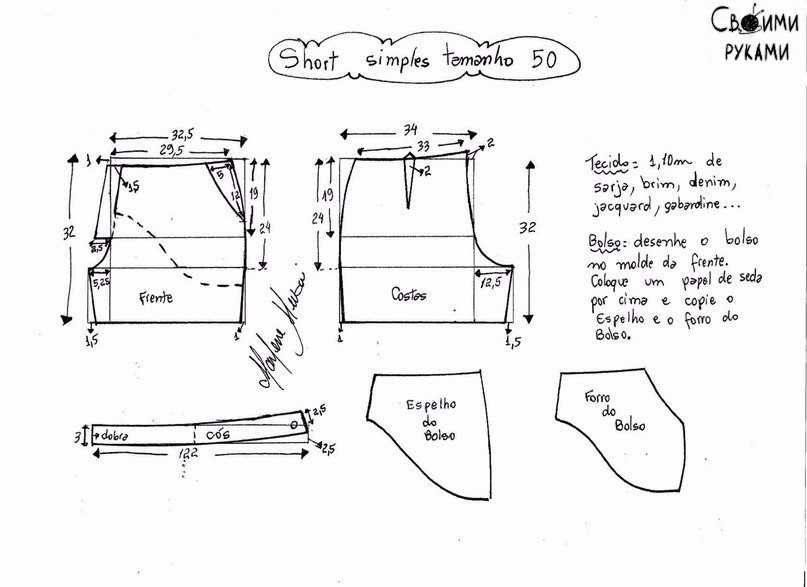 Своими
руками
Short simples tamanho 50
32,5
29,5
1
1,5
5
12
19
24
32
2,5
5,25
Frente
1,5
1
34
33
2
2
19
24
32
Costas
12,5
1
1,5
Tecido = 1,10m de
sarja, brim, denim,
jacquard, gabardine...
Bolso = desenhe o bolso
no molde da frente.
Coloque um papel de seda
por cima e copie o
Espelho e o forro do
Bolso.
Marlene Mukai
3
dobra
cós
2,5
2,5
122
Espelho
do
Bolso
Forro
do
Bolso